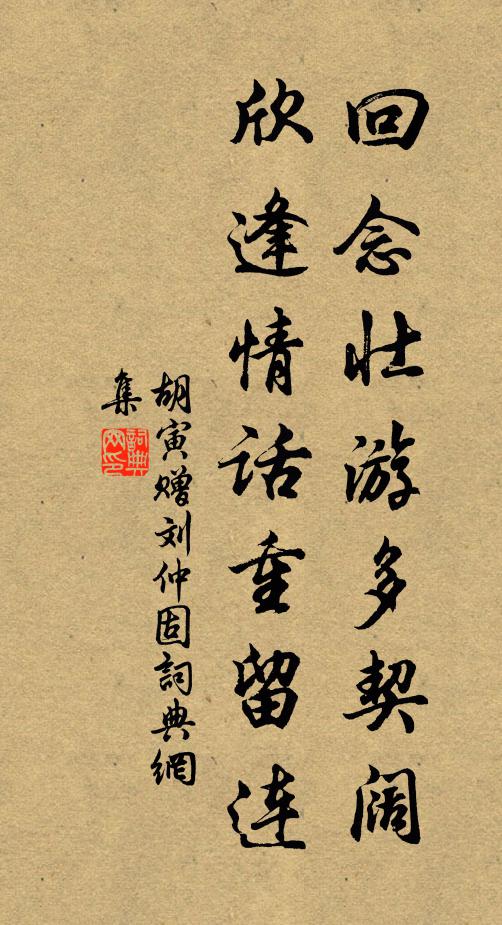 回念壮游多契阔
欣逢情话重留连
胡寅赠刘仲固詞典網
集
詞典網印